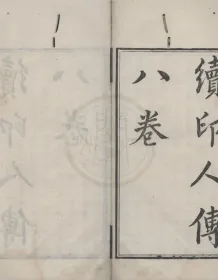 續印人傳
八卷